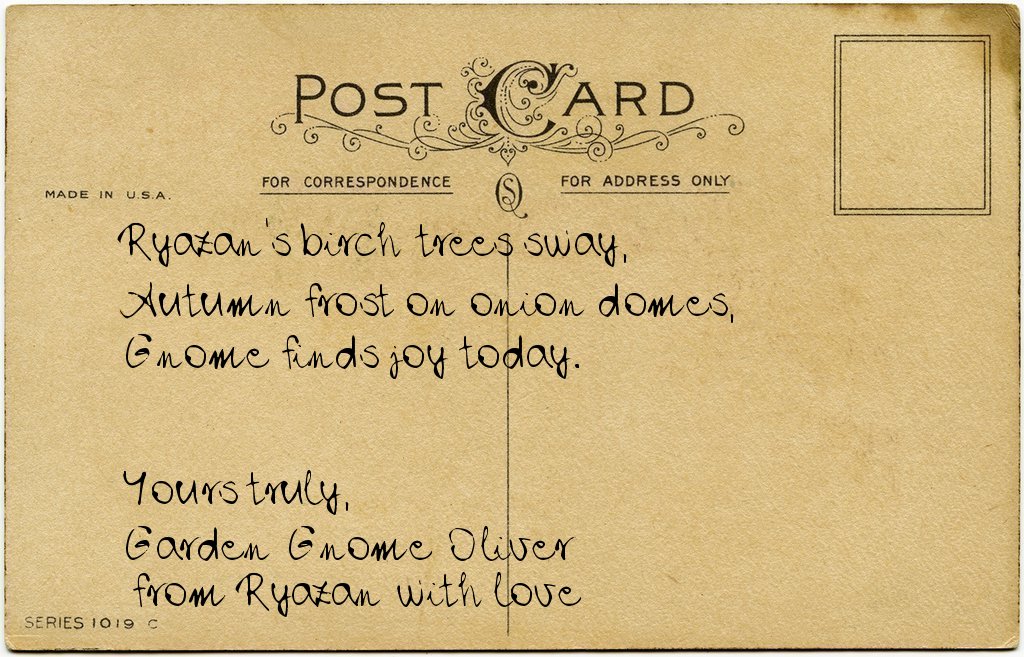 POST CARD
FOR CORRESPONDENCE
FOR ADDRESS ONLY
MADE IN U.S.A.
Ryazan's birch trees sway,
Autumn frost on onion domes,
Gnome finds joy today.
Yours truly,
Garden Gnome Oliver
from Ryazan with love
SERIES 1019 C